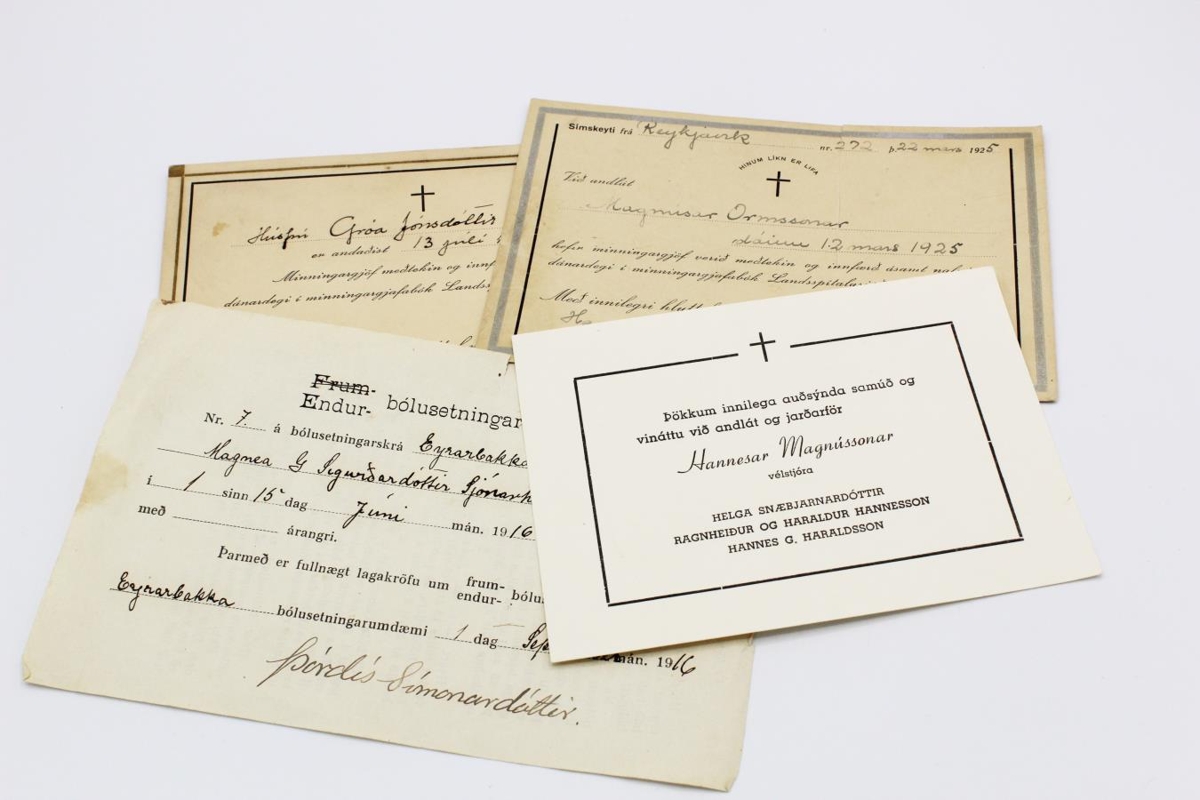 Húsfrú Gróa Jónsdóttir
er andaðist 13 júlí
Minningargjöf meðtekin og innf
dánardegi í minningargjafabók Lands
Símskeyti frá Reykjavik nr. 272 þ. 22 mars 1925
HINUM LÍKN ER LIFA
Við andlát
Magnúsar Ormssonar
dáinn 12 mars 1925
hefir minningargjöf verið meðtekin og innfærð ásamt
dánardegi í minningargjafabók Landsspítalas
Með innilegri hlutt
Frum-
Endur- bólusetningar
Nr. 7. á bólusetningarskrá Eyrarbakka
Magnea G Sigurðardóttir Sjónarh
í 1 sinn 15 dag Júní mán. 1916
með árangri.
Þarmeð er fullnægt lagakröfu um frum- bólu
endur-
Eyrarbakka bólusetningarumdæmi 1 dag Sep mán. 1916
Þórdís Símonardóttir.
Þökkum innilega auðsýnda samúð og
vináttu við andlát og jarðarför
Hannesar Magnússonar
vélstjóra
HELGA SNÆBJARNARDÓTTIR
RAGNHEIÐUR OG HARALDUR HANNESSON
HANNES G. HARALDSSON